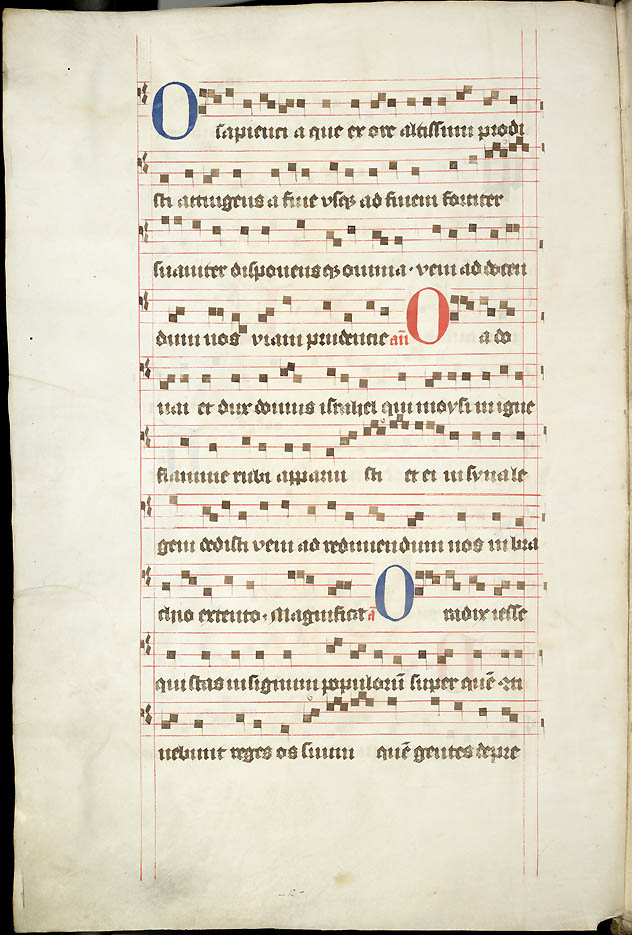 O sapienci a que ex ore altissimi prodi
sti attingens a fine usqȝ ad finem fortiter
suaviter disponensqȝ omnia · veni ad docen
dum nos viam prudencie añ O a do
nai et dux domus israhel qui moysi in igne
flamme rubi apparui sti et ei in syna le
gem dedisti veni ad redimendum nos in bra
chio extento · Magnificat a O radix iesse
qui stas in signum populorū super quē ↄti
nebunt reges os suum quē gentes depre